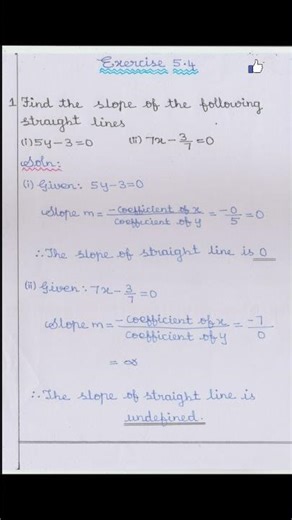 Exercise 5.4
1 Find the slope of the following
straight lines
(i) 5y-3=0 (ii) 7x-3/7=0
Soln:
(i) Given: 5y-3=0
Slope m = -coefficient of x/coefficient of y = -0/5 = 0
∴ The slope of straight line is 0
(ii) Given: 7x-3/7=0
Slope m = -coefficient of x/coefficient of y = -7/0
= ∞
∴ The slope of straight line is
undefined.